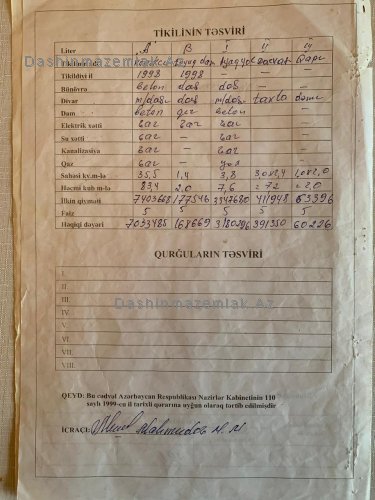 TİKİLİNİN TƏSVİRİ
Liter A B I II IIJ
Tikilinin adı
Tikildiyi il 1998 1998 — — —
Bünövrə beton daş daş — —
Divar m/daş daş m/daş taxta dəmir
Dam beton qır beton — —
Elektrik xətti var var var
Su xətti var — — —
Kanalizasiya var — var
Qaz var — yox
Sahəsi kv.m-lə 35,5 1,4 3,8 3,0x2,4 1,0x2,0
Həcmi kub m-lə 83,4 2.0 7,6 = 7.2 = 2,0
İlkin qiyməti 7403668 177546 3347680 411948 63396
Faiz 5 5 5 5 5
Həqiqi dəyəri 7033485 168669 3180296 391350 60226
QURĞULARIN TƏSVİRİ
I.
II.
III.
IV.
V.
VI.
VII.
VIII.
Dashinmazemlak.Az
QEYD: Bu cədvəl Azərbaycan Respublikası Nazirlər Kabinetinin 110
saylı 1999-cu il tarixli qərarına uyğun olaraq tərtib edilmişdir
İCRAÇI: